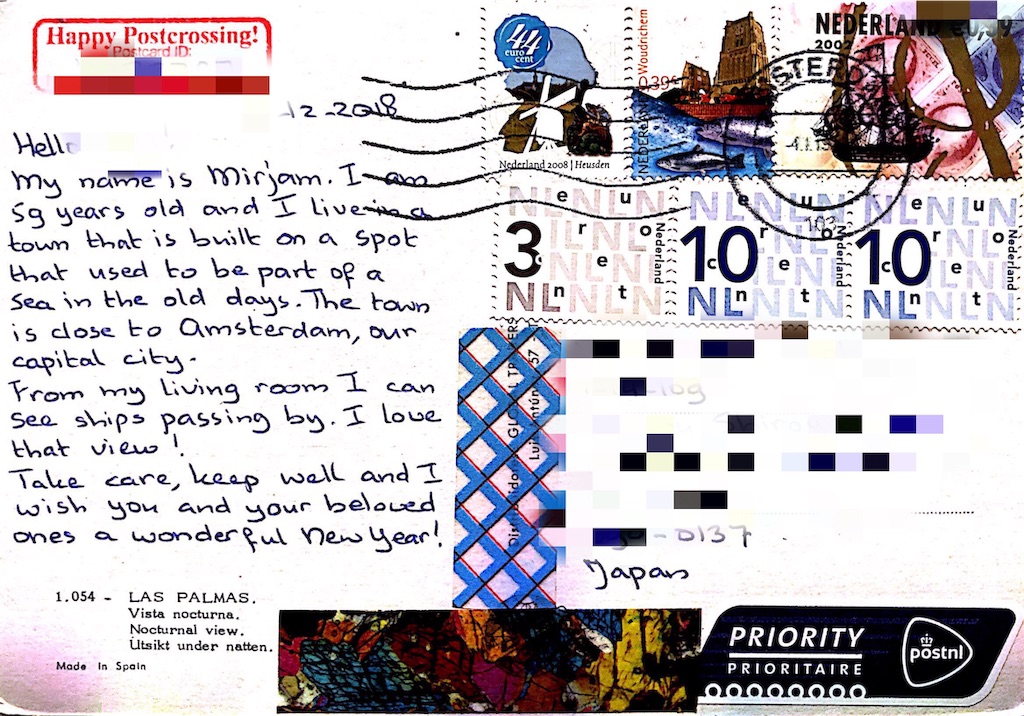 Happy Postcrossing!
Postcard ID:
12-2018
My name is Mirjam. I am
59 years old and I live in a
town that is built on a spot
that used to be part of a
sea in the old days. The town
is close to Amsterdam, our
capital city.
From my living room I can
see ships passing by. I love
that view!
Take care, keep well and I
wish you and your beloved
ones a wonderful New Year!
1.054 - LAS PALMAS.
Vista nocturna.
Nocturnal view.
Utsikt under natten.
Made in Spain
44
euro
cent
Nederland 2008 | Heusden
Woudrichem
0,39
NEDERLAND
NEDERLAND
2002
3 cent
euro
Nederland
NL
10 cent
euro
Nederland
NL
10 cent
euro
Nederland
NL
0137
Japan
PRIORITY
PRIORITAIRE
postnl